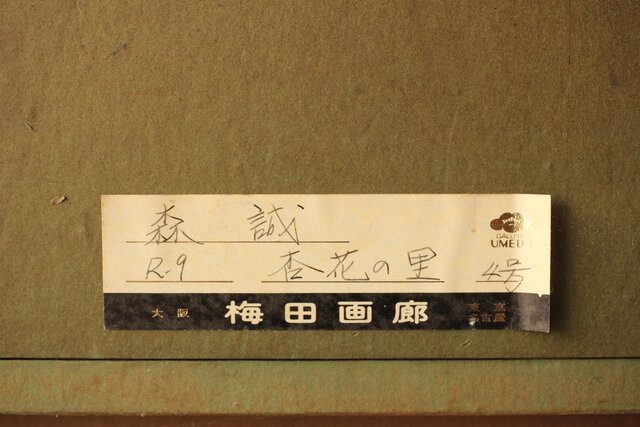 森 誠
GALLERY
UMEDA
R-9 杏花の里 4号
大阪 梅田画廊 東京
名古屋